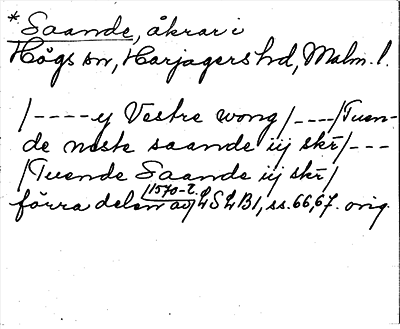 *Saande, åkrar i
Högs sn, Harjagers hd, Malm. l.
/----y Vestre wong/----/Tuen-
de neste saande iij skr/---
/Tuende Saande iij skr/
förra delen av 1570-t. LSLB1, ss. 66, 67. orig.